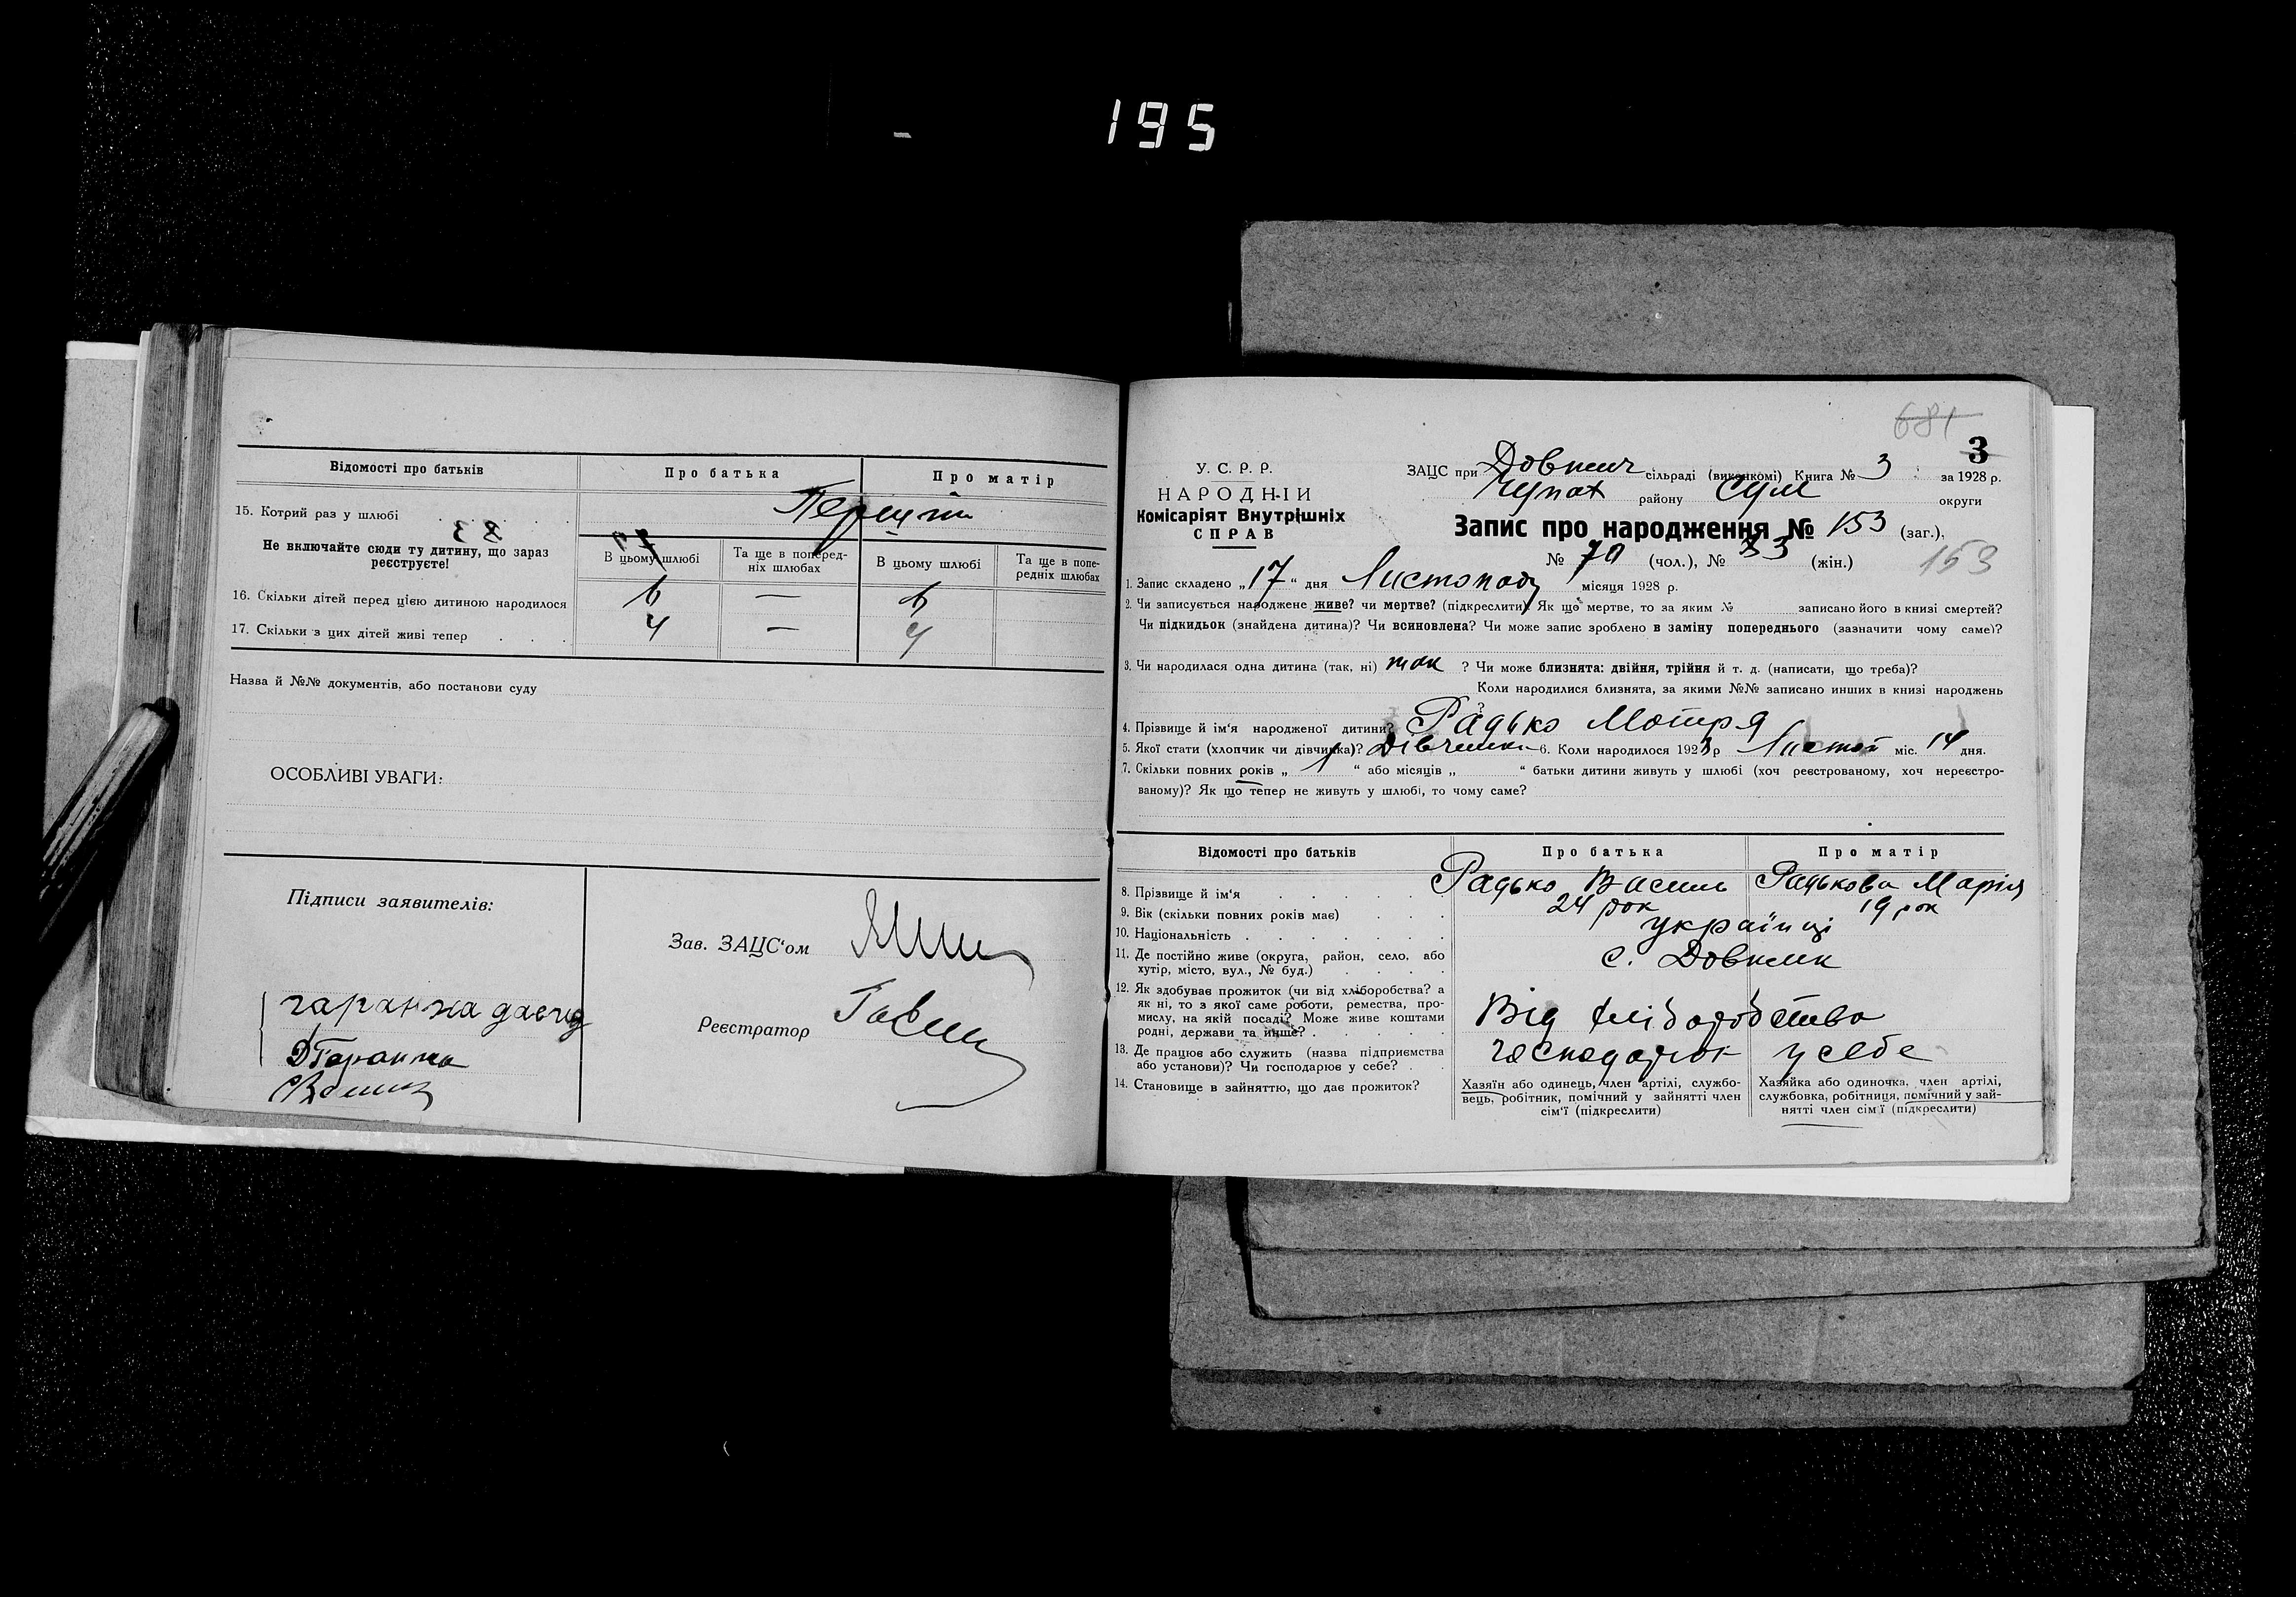 195
Відомості про батьків Про батька Про матір
15. Котрий раз у шлюбі Перший
Не включайте сюди ту дитину, що зараз реєструєте!
В цьому шлюбі Та ще в попередніх шлюбах В цьому шлюбі Та ще в попередніх шлюбах
16. Скільки дітей перед цією дитиною народилося 6 — 6
17. Скільки з цих дітей живі тепер 4 — 4
Назва й №№ документів, або постанови суду
ОСОБЛИВІ УВАГИ:
Підписи заявителів:
Зав. ЗАЦС'ом
Реєстратор
681
3
У. С. Р. Р.
НАРОДНІЙ
Комісаріят Внутрішніх
СПРАВ
ЗАЦС при Довжич сільраді (виконкомі) Книга № 3 за 1928 р.
району Сум округи
Запис про народження № 153 (заг.),
№ 70 (чол.), № 83 (жін.) 153
1. Запис складено „17“ дня Листопада місяця 1928 р.
2. Чи записується народжене живе? чи мертве? (підкреслити) Як що мертве, то за яким № записано його в книзі смертей?
Чи підкидьок (знайдена дитина)? Чи всиновлена? Чи може запис зроблено в заміну попереднього (зазначити чому саме)?
3. Чи народилася одна дитина (так, ні) так ? Чи може близнята: двійня, трійня й т. д. (написати, що треба)?
Коли народилися близнята, за якими №№ записано инших в книзі народжень
?
4. Прізвище й ім'я народженої дитини? Радько Мотря
5. Якої стати (хлопчик чи дівчинка)? Дівчинка 6. Коли народилося 1928 р Листоп міс. 14 дня.
7. Скільки повних років „ 1 “ або місяців „ “ батьки дитини живуть у шлюбі (хоч реєстрованому, хоч нереєстро-
ваному)? Як що тепер не живуть у шлюбі, то чому саме?
Відомості про батьків Про батька Про матір
8. Прізвище й ім'я Радько Василь Радькова Марія
9. Вік (скільки повних років має) 24 рок 19 рок
10. Національність українці
11. Де постійно живе (округа, район, село, або
хутір, місто, вул., № буд.) с. Довжик
12. Як здобуває прожиток (чи від хліборобства? а
як ні, то з якої саме роботи, ремества, про-
мислу, на якій посаді? Може живе коштами
родні, держави та инше? Від хліборобства
13. Де працює або служить (назва підприємства
або установи)? Чи господарює у себе? господарює у себе
14. Становище в зайняттю, що дає прожиток?
Хазяїн або одинець, член артілі, службо-
вець, робітник, помічний у зайнятті член
сім'ї (підкреслити)
Хазяйка або одиночка, член артілі,
службовка, робітниця, помічний у зай-
нятті член сім'ї (підкреслити)